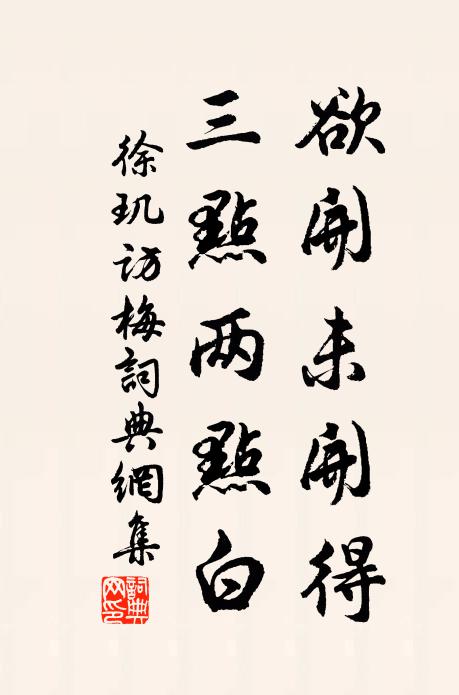 欲開未開得
三點两點白
徐玑访梅詞典網集
詞典网印